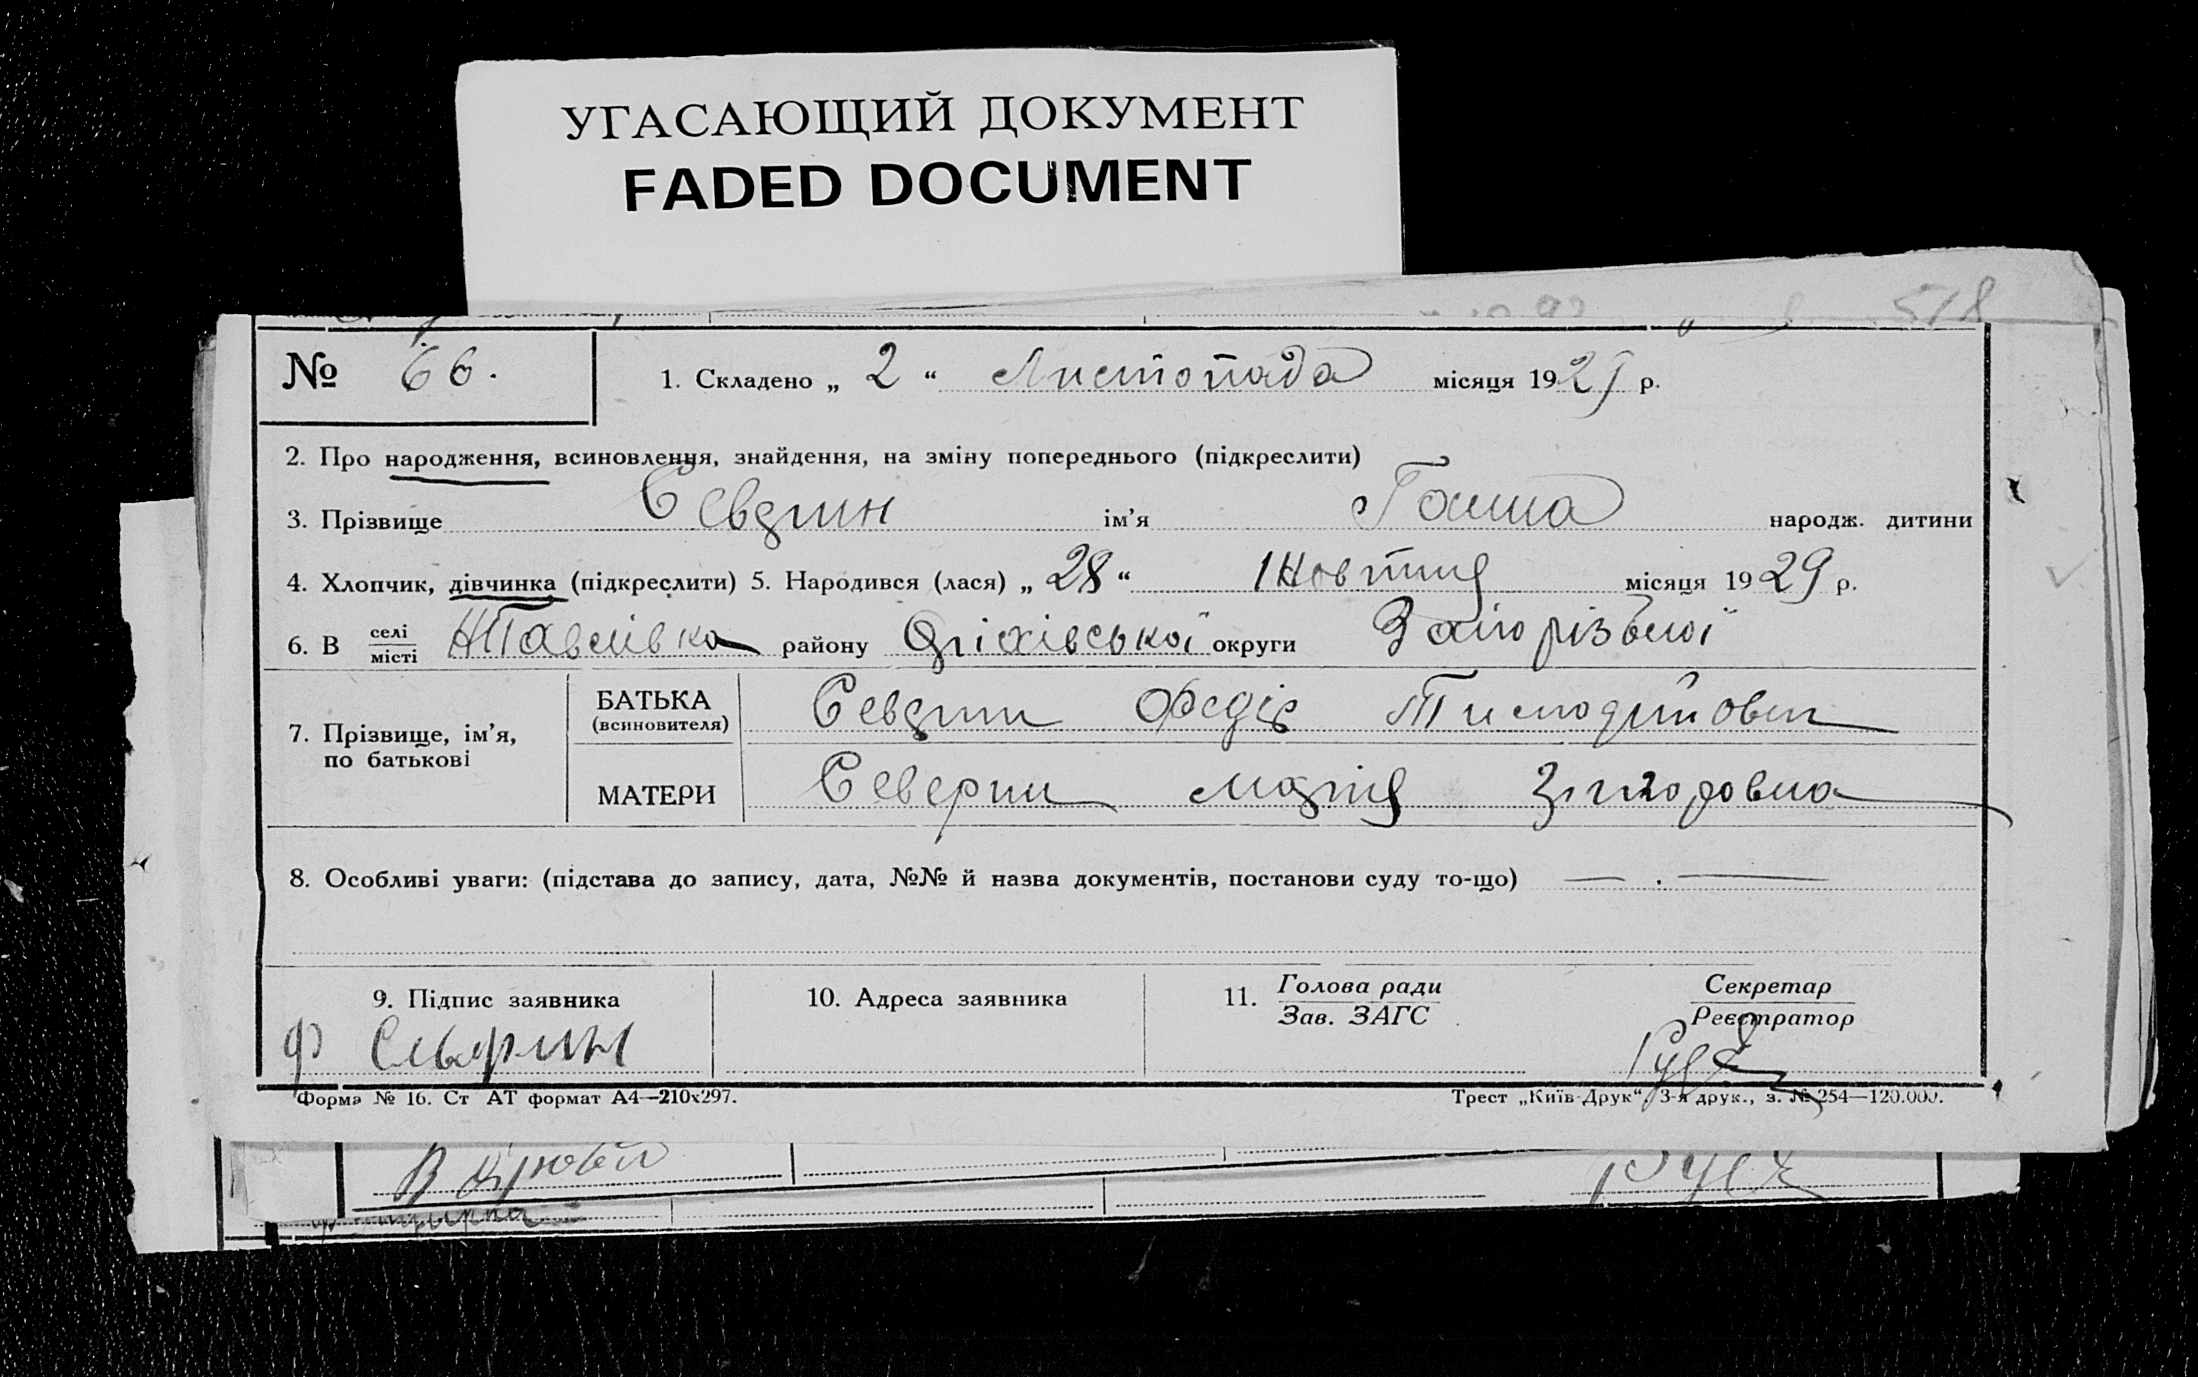 УГАСАЮЩИЙ ДОКУМЕНТ
FADED DOCUMENT
518
№ 66. 1. Складено „ 2 “ Листопада місяця 1929 р.
2. Про народження, всиновлення, знайдення, на зміну попереднього (підкреслити)
3. Прізвище Севрин ім’я Ганна народж. дитини
4. Хлопчик, дівчинка (підкреслити) 5. Народився (лася) „ 28 “ Жовтня місяця 1929 р.
6. В селі місті НПавлівка району Оріхівської округи Запорізької
7. Прізвище, ім’я, по батькові
БАТЬКА (всиновителя) Севрин Федір
МАТЕРИ Северин Марія
8. Особливі уваги: (підстава до запису, дата, №№ й назва документів, постанови суду то-що) — . —
9. Підпис заявника 10. Адреса заявника 11. Голова ради Зав. ЗАГС Секретар Реєстратор
Ф
Форма № 16. Ст АТ формат А4—210х297. Трест „Київ-Друк“, 3-я друк., з. № 254—120.000.